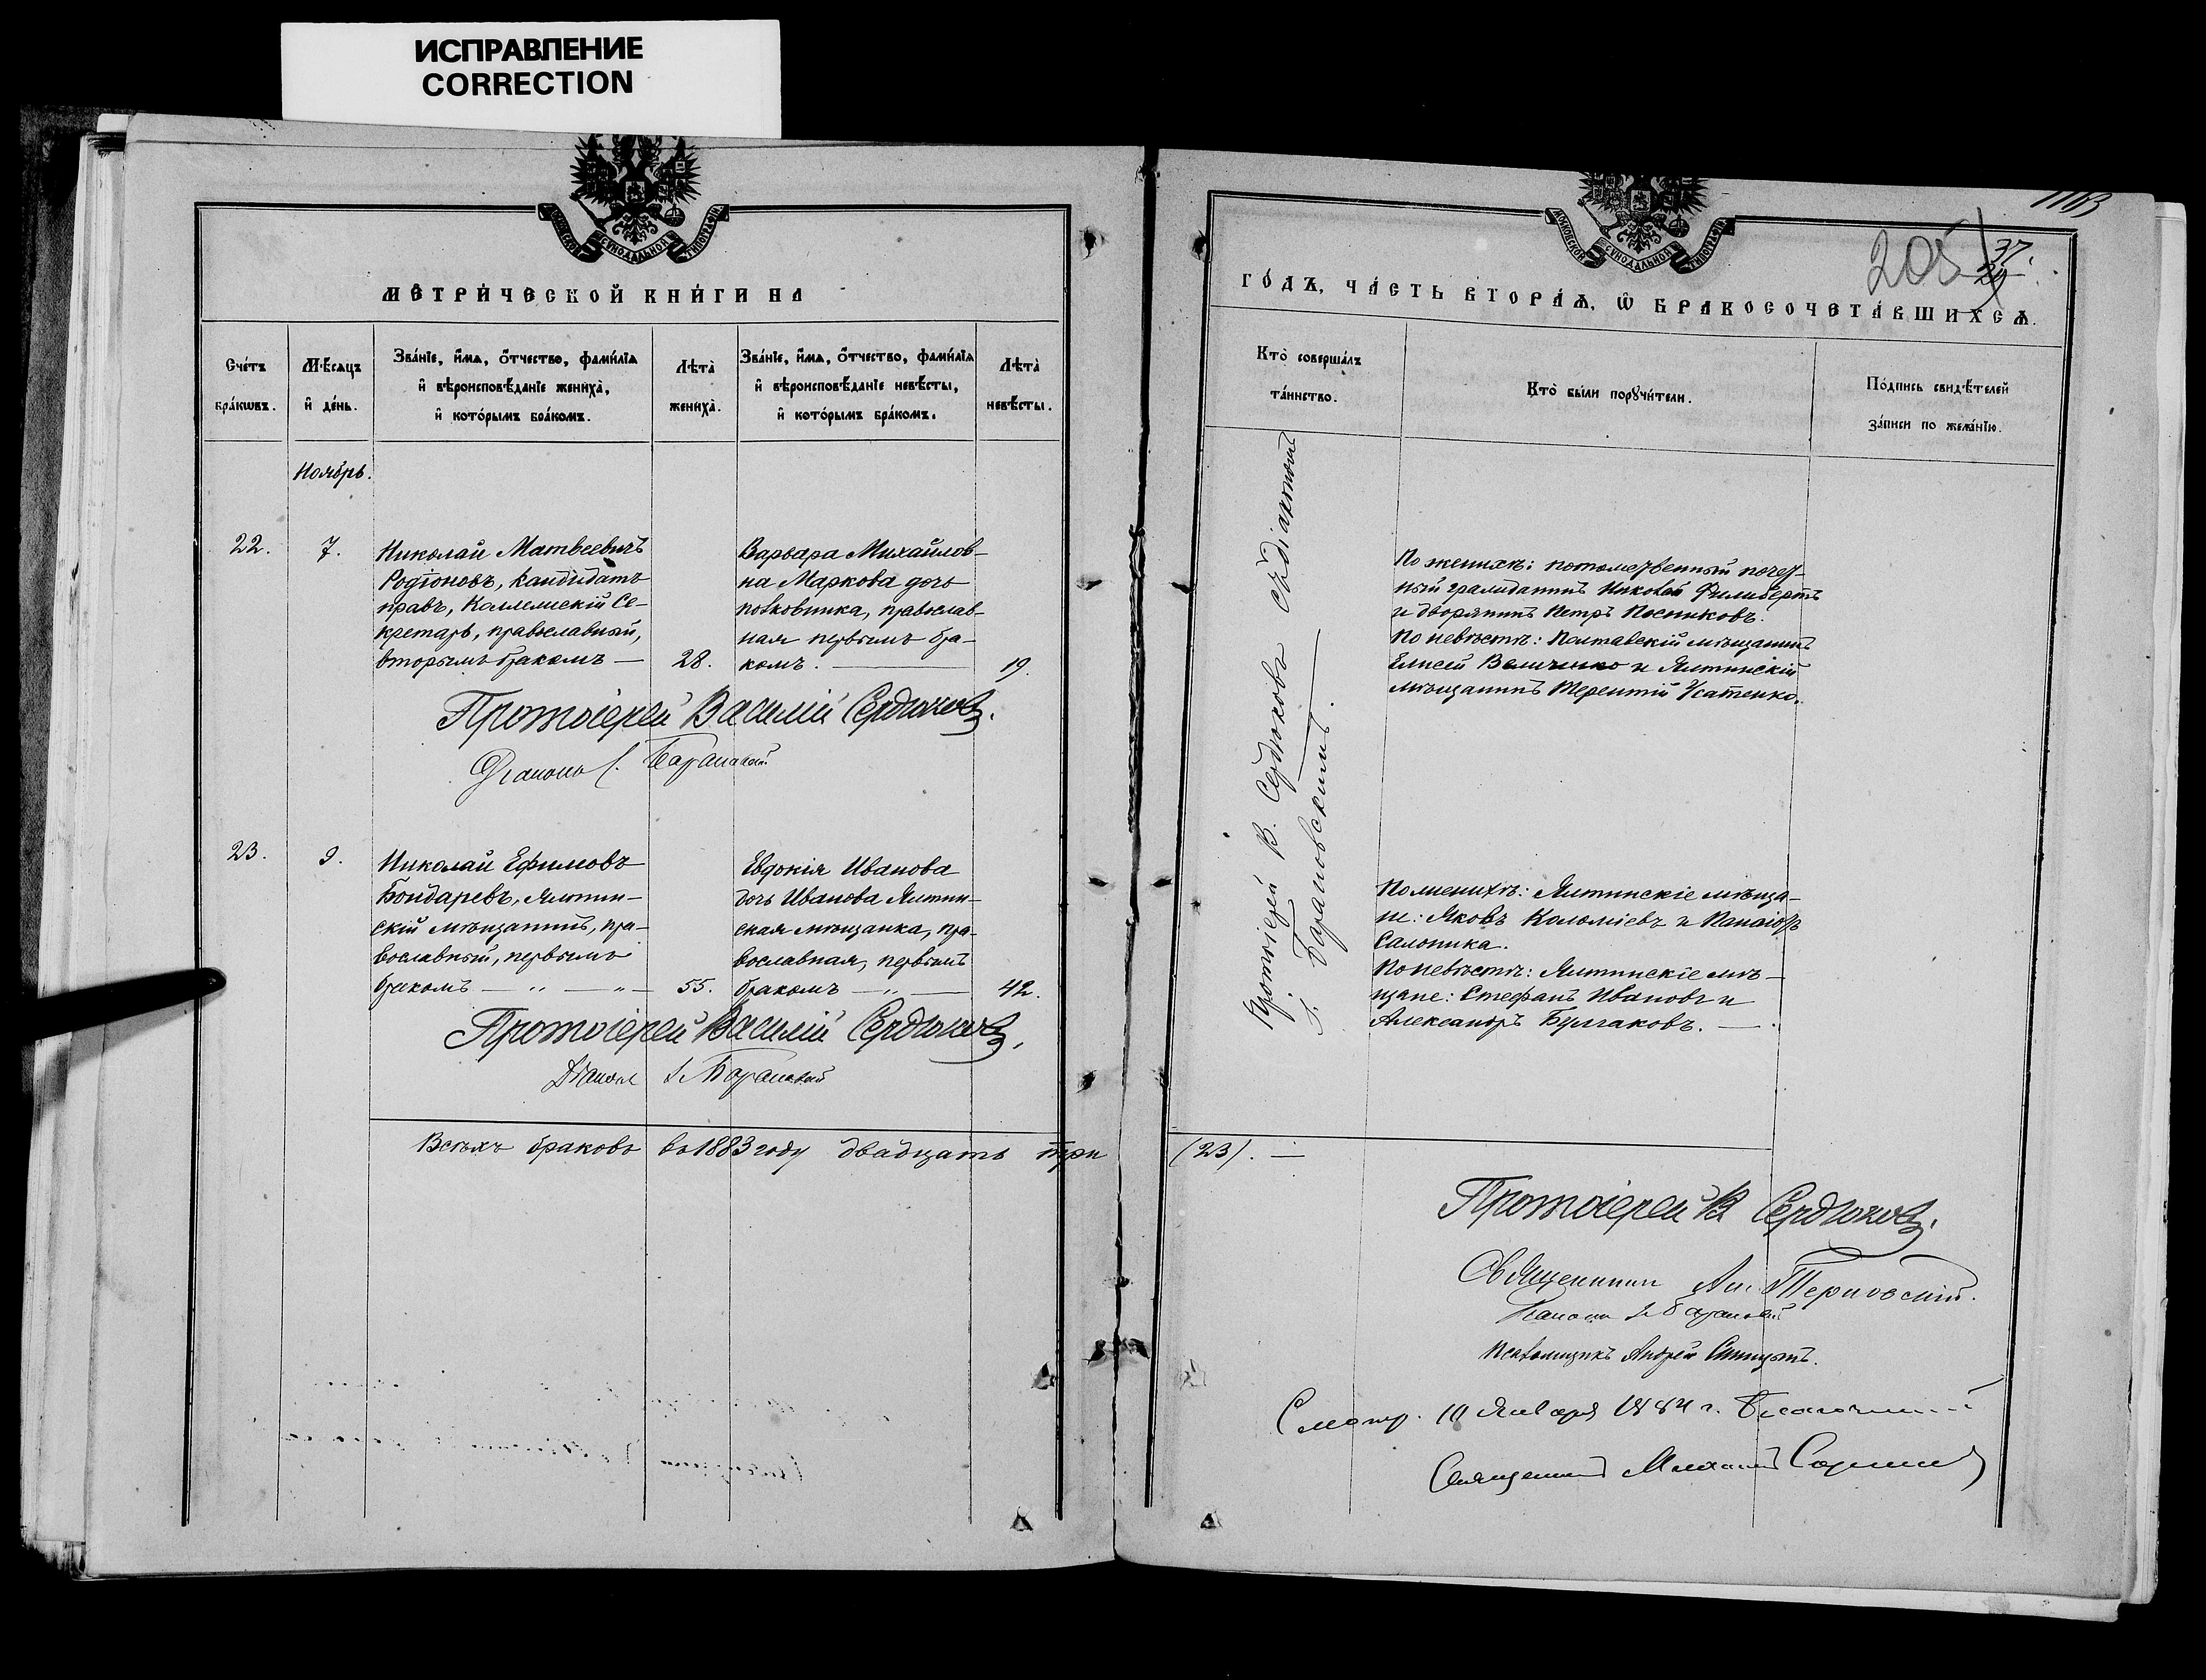 ИСПРАВЛЕНИЕ
CORRECTION
МЕТРИ́ЧЕСКОЙ КНИ́ГИ НА
Сче́тъ бра́кѡвъ.
Мѣ́сяцъ и҆ де́нь.
Зва́нїе, и҆́мѧ, ѻ҆́тчество, фами́лїѧ
и҆ вѣроисповѣ́данїе жениха̀,
и҆ кото́рымъ бра́комъ.
Лѣта̀ жениха̀.
Зва́нїе, и҆́мѧ, ѻ҆́тчество, фами́лїѧ
и҆ вѣроисповѣ́данїе невѣ́сты,
и҆ кото́рымъ бра́комъ.
Лѣта̀ невѣ́сты.
Ноябрь.
22.
7.
Николай Матвеевичъ
Родіоновъ, кандидатъ
правъ, Коллежскій Се-
кретарь, православный,
вторымъ бракомъ —
28.
Варвара Михайлов-
на Маркова дочь
полковника, православ-
ная первымъ бра-
комъ. —
19.
Протоіерей Василій Сердюковъ.
Діаконъ Г. Барановскій
23.
9.
Николай Ефимовъ
Бондаревъ, Ялтин-
скій мѣщанинъ, пра-
вославный, первымъ
бракомъ — „ — „ —
55.
Евдокія Иванова
дочь Иванова Ялтин-
ская мѣщанка, пра-
вославная, первымъ
бракомъ — „ —
42.
Протоіерей Василій Сердюковъ.
Діаконъ Г. Барановскій
Всѣхъ браковъ въ 1883 году двадцать три
1163
205
37.
29
ГО́ДЪ, ЧА́СТЬ ВТОРА́Ѧ, Ѽ БРАКОСОЧЕТА́ВШИХСѦ.
Кто̀ соверша́лъ
та́инство.
Кто̀ бы́ли порꙋчи́тели.
По́дпись свидѣ́телей
за́писи по жела́нїю.
Протоіерей В. Сердюковъ съ діакономъ
Г. Барановскимъ.
По женихѣ: потомственный почет-
ный гражданинъ Николай Филибертъ
и дворянинъ Петръ Посниковъ.
По невѣстѣ: Полтавскій мѣщанинъ
Елисей Величко и Ялтинскій
мѣщанинъ Терентій Усатенко.
По женихѣ: Ялтинскіе мѣща-
не: Яковъ Коломіевъ и Панаіотъ
Салоника.
По невѣстѣ: Ялтинскіе мѣ-
щане: Стефанъ Ивановъ и
Александръ Булгаковъ. —
(23). —
Протоіерей В Сердюковъ.
Священникъ Ан. Терновскій.
Діаконъ Г. Барановскій
Псаломщикъ Андрей Синицынъ.
Смотр. 10 Января 1884 г. Благочинный
Священникъ Михаилъ